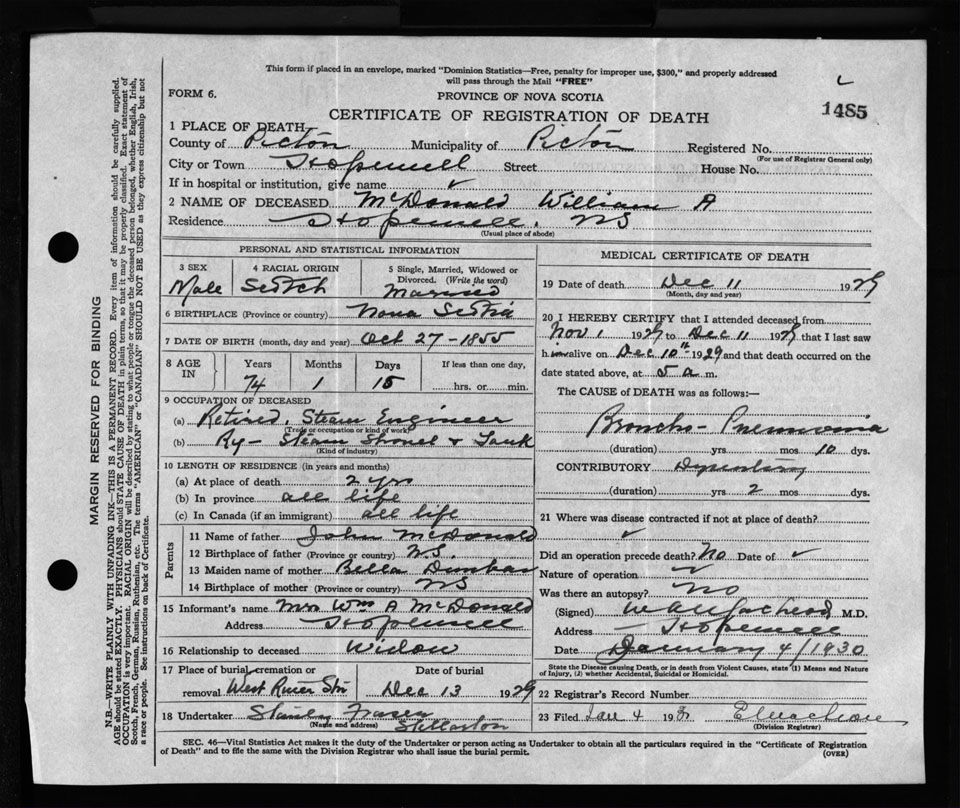 This form if placed in an envelope, marked "Dominion Statistics—Free, penalty for improper use, $300," and properly addressed
will pass through the Mail "FREE"
FORM 6.
PROVINCE OF NOVA SCOTIA
1485
CERTIFICATE OF REGISTRATION OF DEATH
1 PLACE OF DEATH
County of Pictou Municipality of Pictou Registered No.
(For use of Registrar General only)
City or Town Hopewell Street House No.
If in hospital or institution, give name ✓
2 NAME OF DECEASED McDonald William A
Residence Hopewell, NS
(Usual place of abode)
PERSONAL AND STATISTICAL INFORMATION
3 SEX 4 RACIAL ORIGIN 5 Single, Married, Widowed or Divorced. (Write the word)
Male Scotch Married
6 BIRTHPLACE (Province or country) Nova Scotia
7 DATE OF BIRTH (month, day and year) Oct 27 - 1855
8 AGE IN Years Months Days If less than one day,
74 1 15 hrs. or min.
9 OCCUPATION OF DECEASED
(a) Retired, Steam Engineer
(Trade or occupation or kind of work)
(b) Ry - Steam Shovel &
(Kind of industry)
10 LENGTH OF RESIDENCE (in years and months)
(a) At place of death 2 yrs
(b) In province all life
(c) In Canada (if an immigrant) all life
Parents
11 Name of father John McDonald
12 Birthplace of father (Province or country) N.S.
13 Maiden name of mother Bella Dunbar
14 Birthplace of mother (Province or country) NS
15 Informant's name Mrs Wm A McDonald
Address Hopewell
16 Relationship to deceased Widow
17 Place of burial, cremation or removal West River Stn
Date of burial Dec 13 1929
18 Undertaker Stanley Fraser
(Name and address) Stellarton
MEDICAL CERTIFICATE OF DEATH
19 Date of death Dec 11 1929
(Month, day and year)
20 I HEREBY CERTIFY that I attended deceased from
Nov 1 1929 to Dec 11 1929 that I last saw
h alive on Dec 10th 1929 and that death occurred on the
date stated above, at 5 a m.
The CAUSE OF DEATH was as follows:—
Broncho-Pneumonia
(duration) yrs mos 10 dys.
CONTRIBUTORY Dysentery
(duration) yrs 2 mos dys.
21 Where was disease contracted if not at place of death?
✓
Did an operation precede death? No Date of ✓
Nature of operation
Was there an autopsy? No
(Signed) M.D.
Address Hopewell
Date January 4/1930
State the Disease causing Death, or in death from Violent Causes, state (1) Means and Nature
of Injury, (2) whether Accidental, Suicidal or Homicidal.
22 Registrar's Record Number
23 Filed Jan 4 193
(Division Registrar)
SEC. 46—Vital Statistics Act makes it the duty of the Undertaker or person acting as Undertaker to obtain all the particulars required in the "Certificate of Registration
of Death" and to file the same with the Division Registrar who shall issue the burial permit.
(OVER)
MARGIN RESERVED FOR BINDING
N.B.—WRITE PLAINLY WITH UNFADING INK—THIS IS A PERMANENT RECORD. Every item of information should be carefully supplied.
AGE should be stated EXACTLY. PHYSICIANS should STATE CAUSE OF DEATH in plain terms, so that it may be properly classified. Exact statement of
OCCUPATION is very important. RACIAL ORIGIN will be described by stating to what people or tongue the deceased person belonged, whether English, Irish,
Scotch, French, German, Russian, Ruthenian, etc. The terms "AMERICAN" or "CANADIAN" SHOULD NOT BE USED as they express citizenship but not
a race or people. See instructions on back of Certificate.